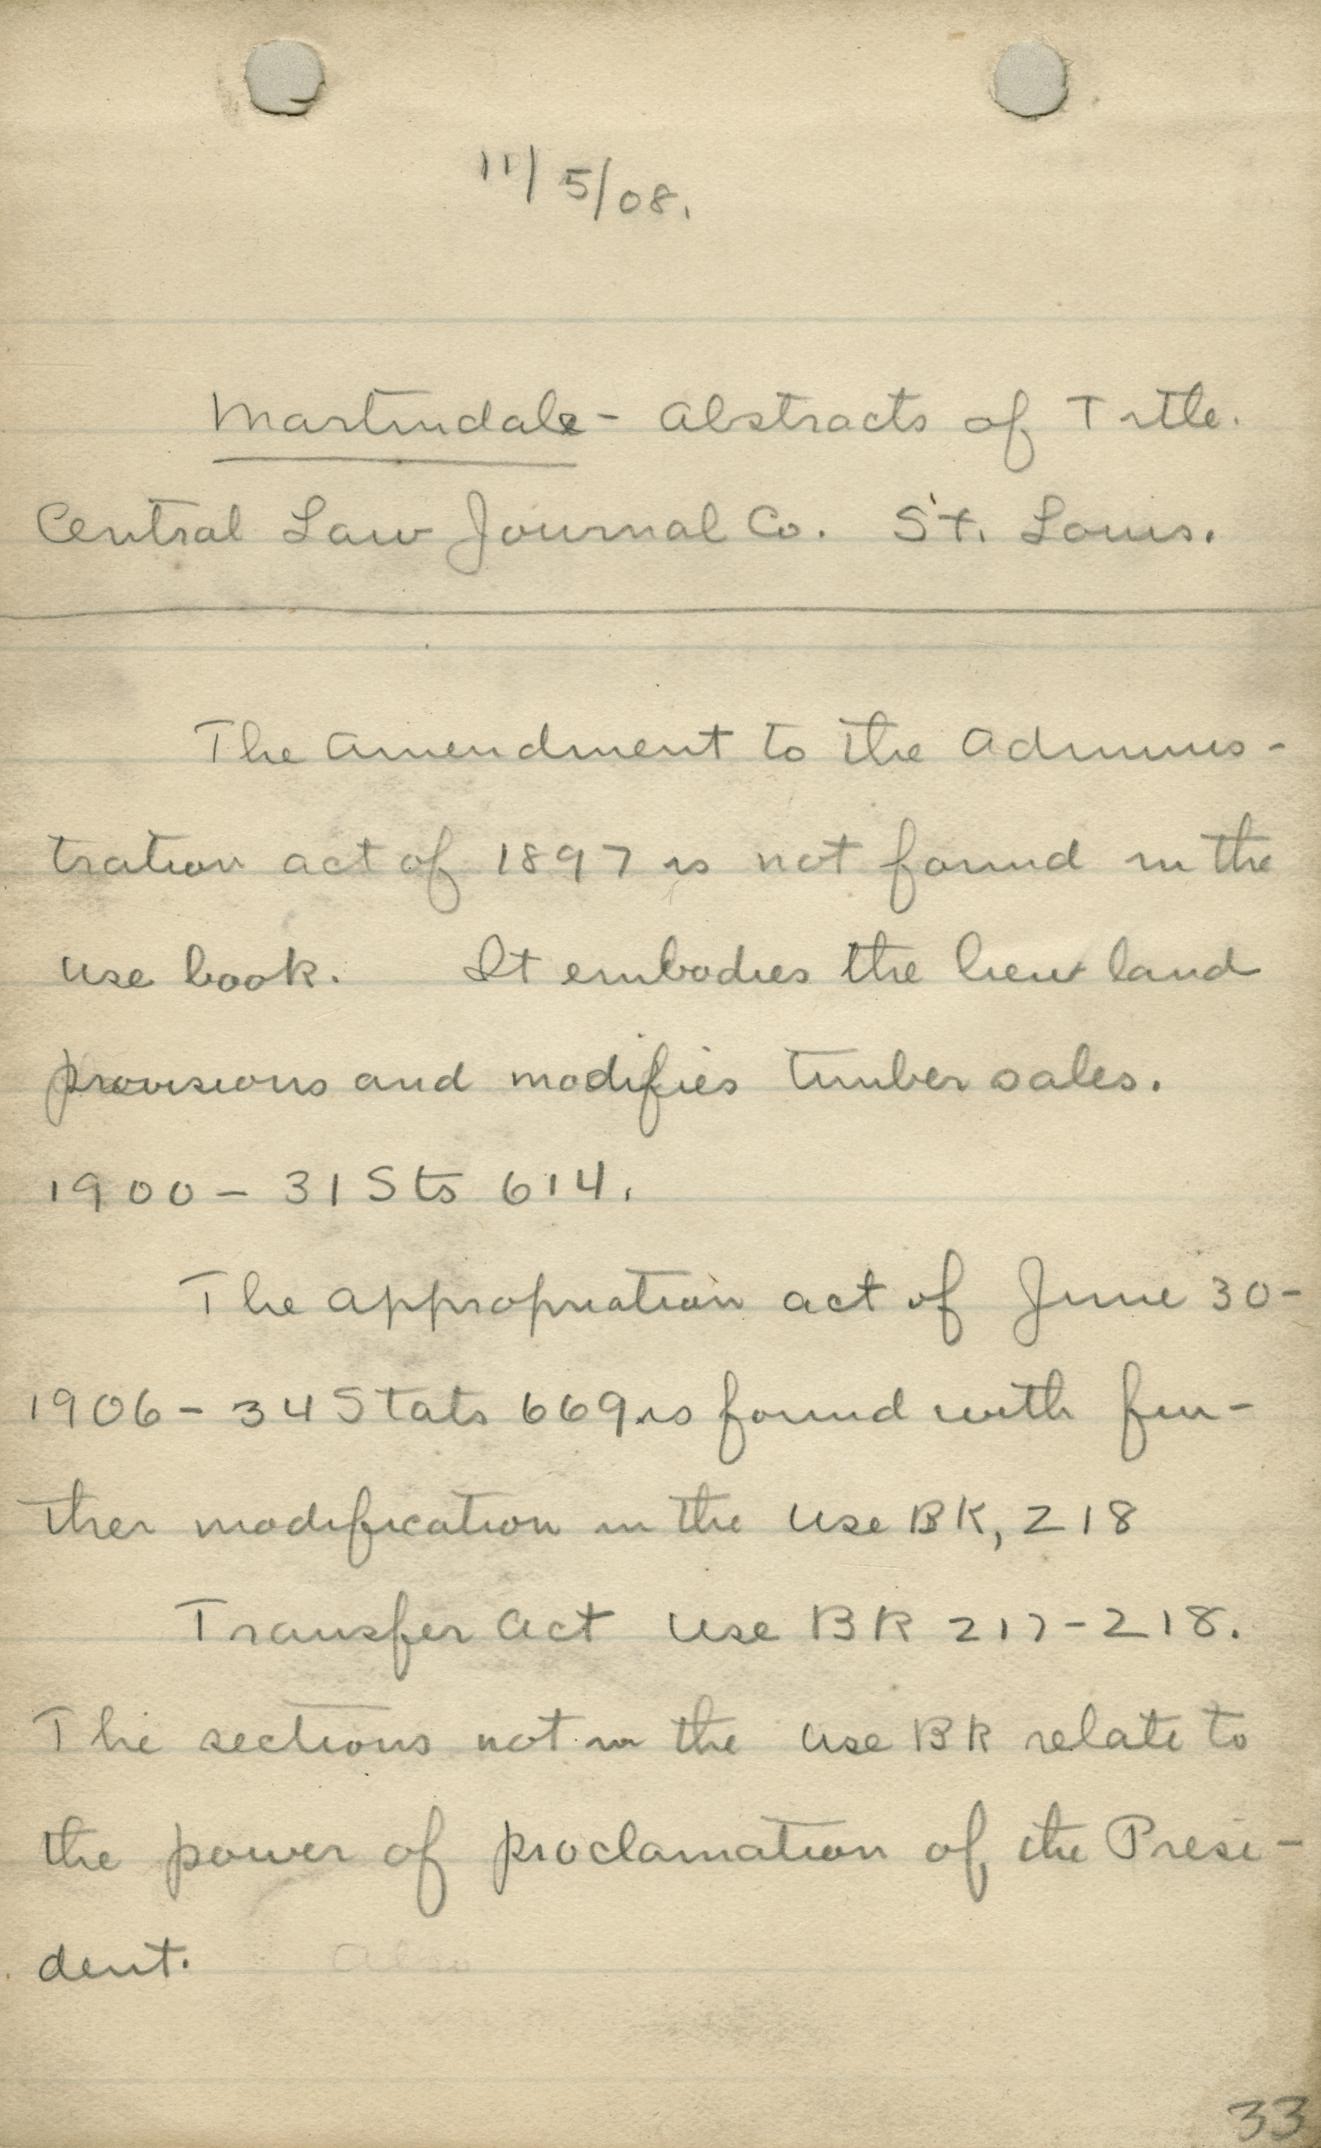 11/5/08.
Martindale - Abstracts of Title.
Central Law Journal Co. St. Louis.
The amendment to the Adminis-
tration act of 1897 is not found in the
use book. It embodies the lieu land
provisions and modifies timber sales.
1900 - 31 Sts 614.
The appropriation act of June 30-
1906 - 34 Stats 669 is found with fur-
ther modification in the Use BK, 218
Transfer Act Use BK 217-218.
The sections not in the Use BK relate to
the power of proclamation of the Presi-
dent. Also
33